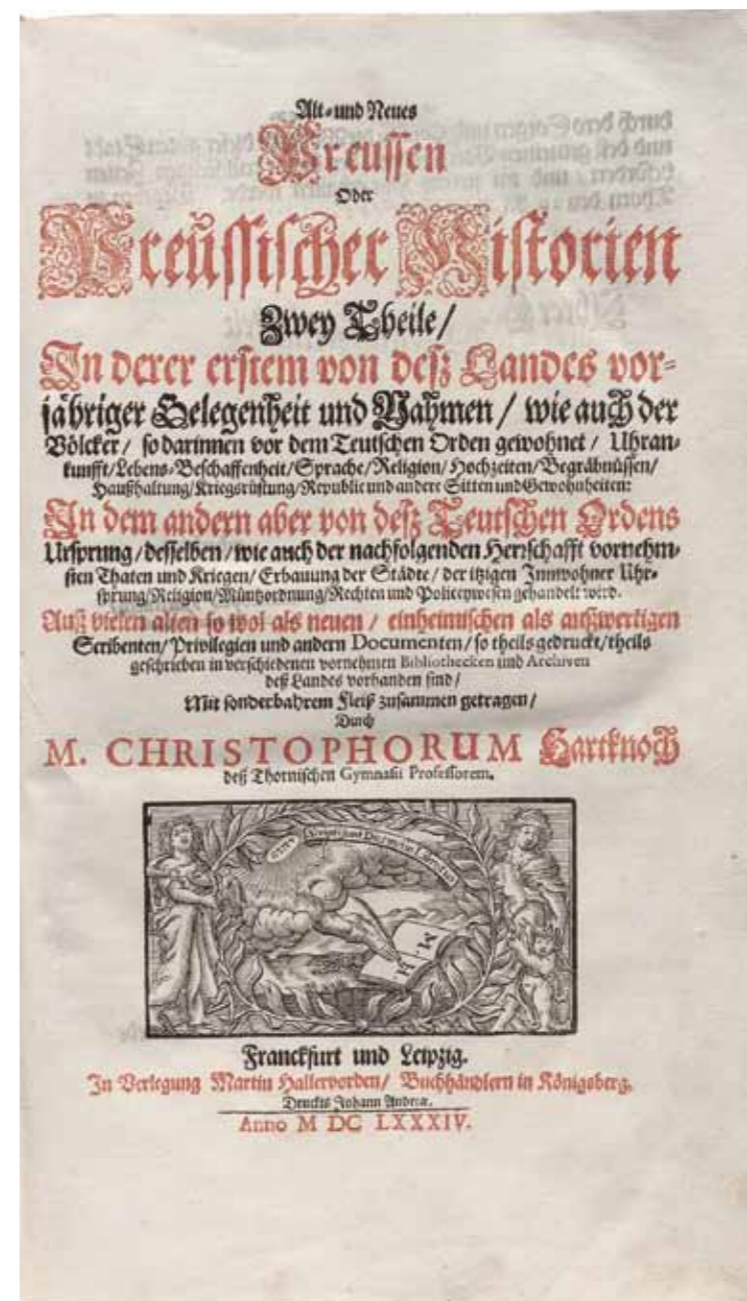 Alt- und Neues
Preussen
Oder
Preussischer Historien
Zwey Theile/
In derer erstem von deß Landes vor-
jähriger Gelegenheit und Nahmen/ wie auch der
Völcker/ so darinnen vor dem Teutschen Orden gewohnet/ Uhran-
kunfft/Lebens-Beschaffenheit/Sprache/Religion/Hochzeiten/Begräbnüssen/
Haußhaltung/Kriegsrüstung/Republic und andere Sitten und Gewohnheiten:
In dem andern aber von deß Teutschen Ordens
Ursprung/desselben/wie auch der nachfolgenden Herrschafft vornehm-
sten Thaten und Kriegen/Erbauung der Städte/der itzigen Innwohner Uhr-
sprung/Religion/Müntzordnung/Rechten und Policeywesen gehandelt wird.
Auß vielen alten so wol als neuen/ einheimischen als außwertigen
Scribenten/Privilegien und andern Documenten/so theils gedruckt/theils
geschrieben in verschiedenen vornehmen Bibliothecken und Archiven
deß Landes vorhanden sind/
Mit sonderbahrem Fleiß zusammen getragen/
Durch
M. CHRISTOPHORUM Hartknoch
deß Thornischen Gymnasii Professorem.
M H
Franckfurt und Leipzig.
In Verlegung Martin Hallervorden/ Buchhändlern in Königsberg.
Druckts Johann Andreæ.
Anno M DC LXXXIV.